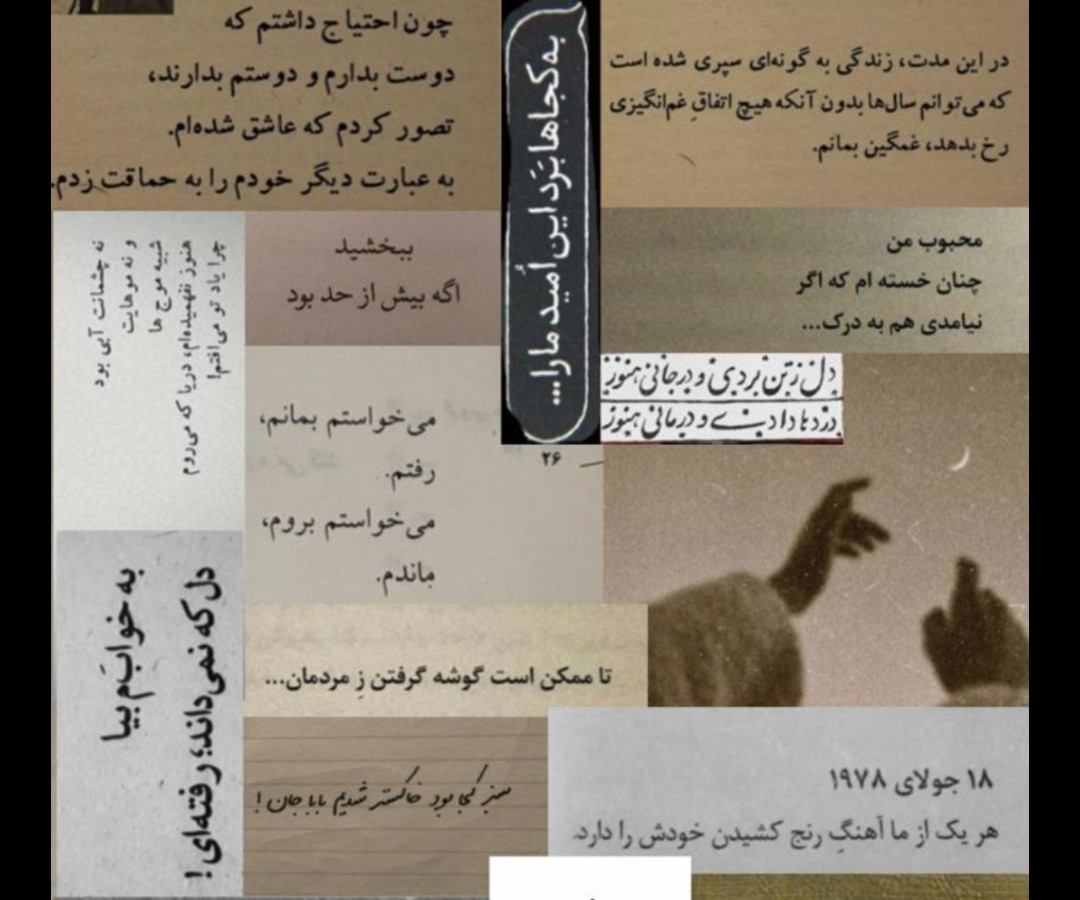 چون احتیاج داشتم که
دوست بدارم و دوستم بدارند،
تصور کردم که عاشق شده‌ام.
به عبارت دیگر خودم را به حماقت زدم.
به کجاها بَرَد این اُمید ما را...
در این مدت، زندگی به گونه‌ای سپری شده است
که می‌توانم سال‌ها بدون آنکه هیچ اتفاقِ غم‌انگیزی
رخ بدهد، غمگین بمانم.
محبوب من
چنان خسته ام که اگر
نیامدی هم به درک...
ببخشید
اگه بیش از حد بود
چرا یاد تو می‌افتم!
هنوز نفهمیده‌ام، دریا که می‌روم
شبیه موج ها
و نه موهایت
نه چشمانت آبی بود
دل ز تن بردی و در جانی هنوز
دردها دادی و درمانی هنوز
۲۶
می‌خواستم بمانم،
رفتم.
می‌خواستم بروم،
ماندم.
دل که نمی‌داند؛ رفته‌ای!
به خوابَم بیا
تا ممکن است گوشه گرفتن زِ مردمان...
سبز کجا بود خاکستر شدیم بابا جان!
۱۸ جولای ۱۹۷۸
هر یک از ما آهنگِ رنج کشیدن خودش را دارد.